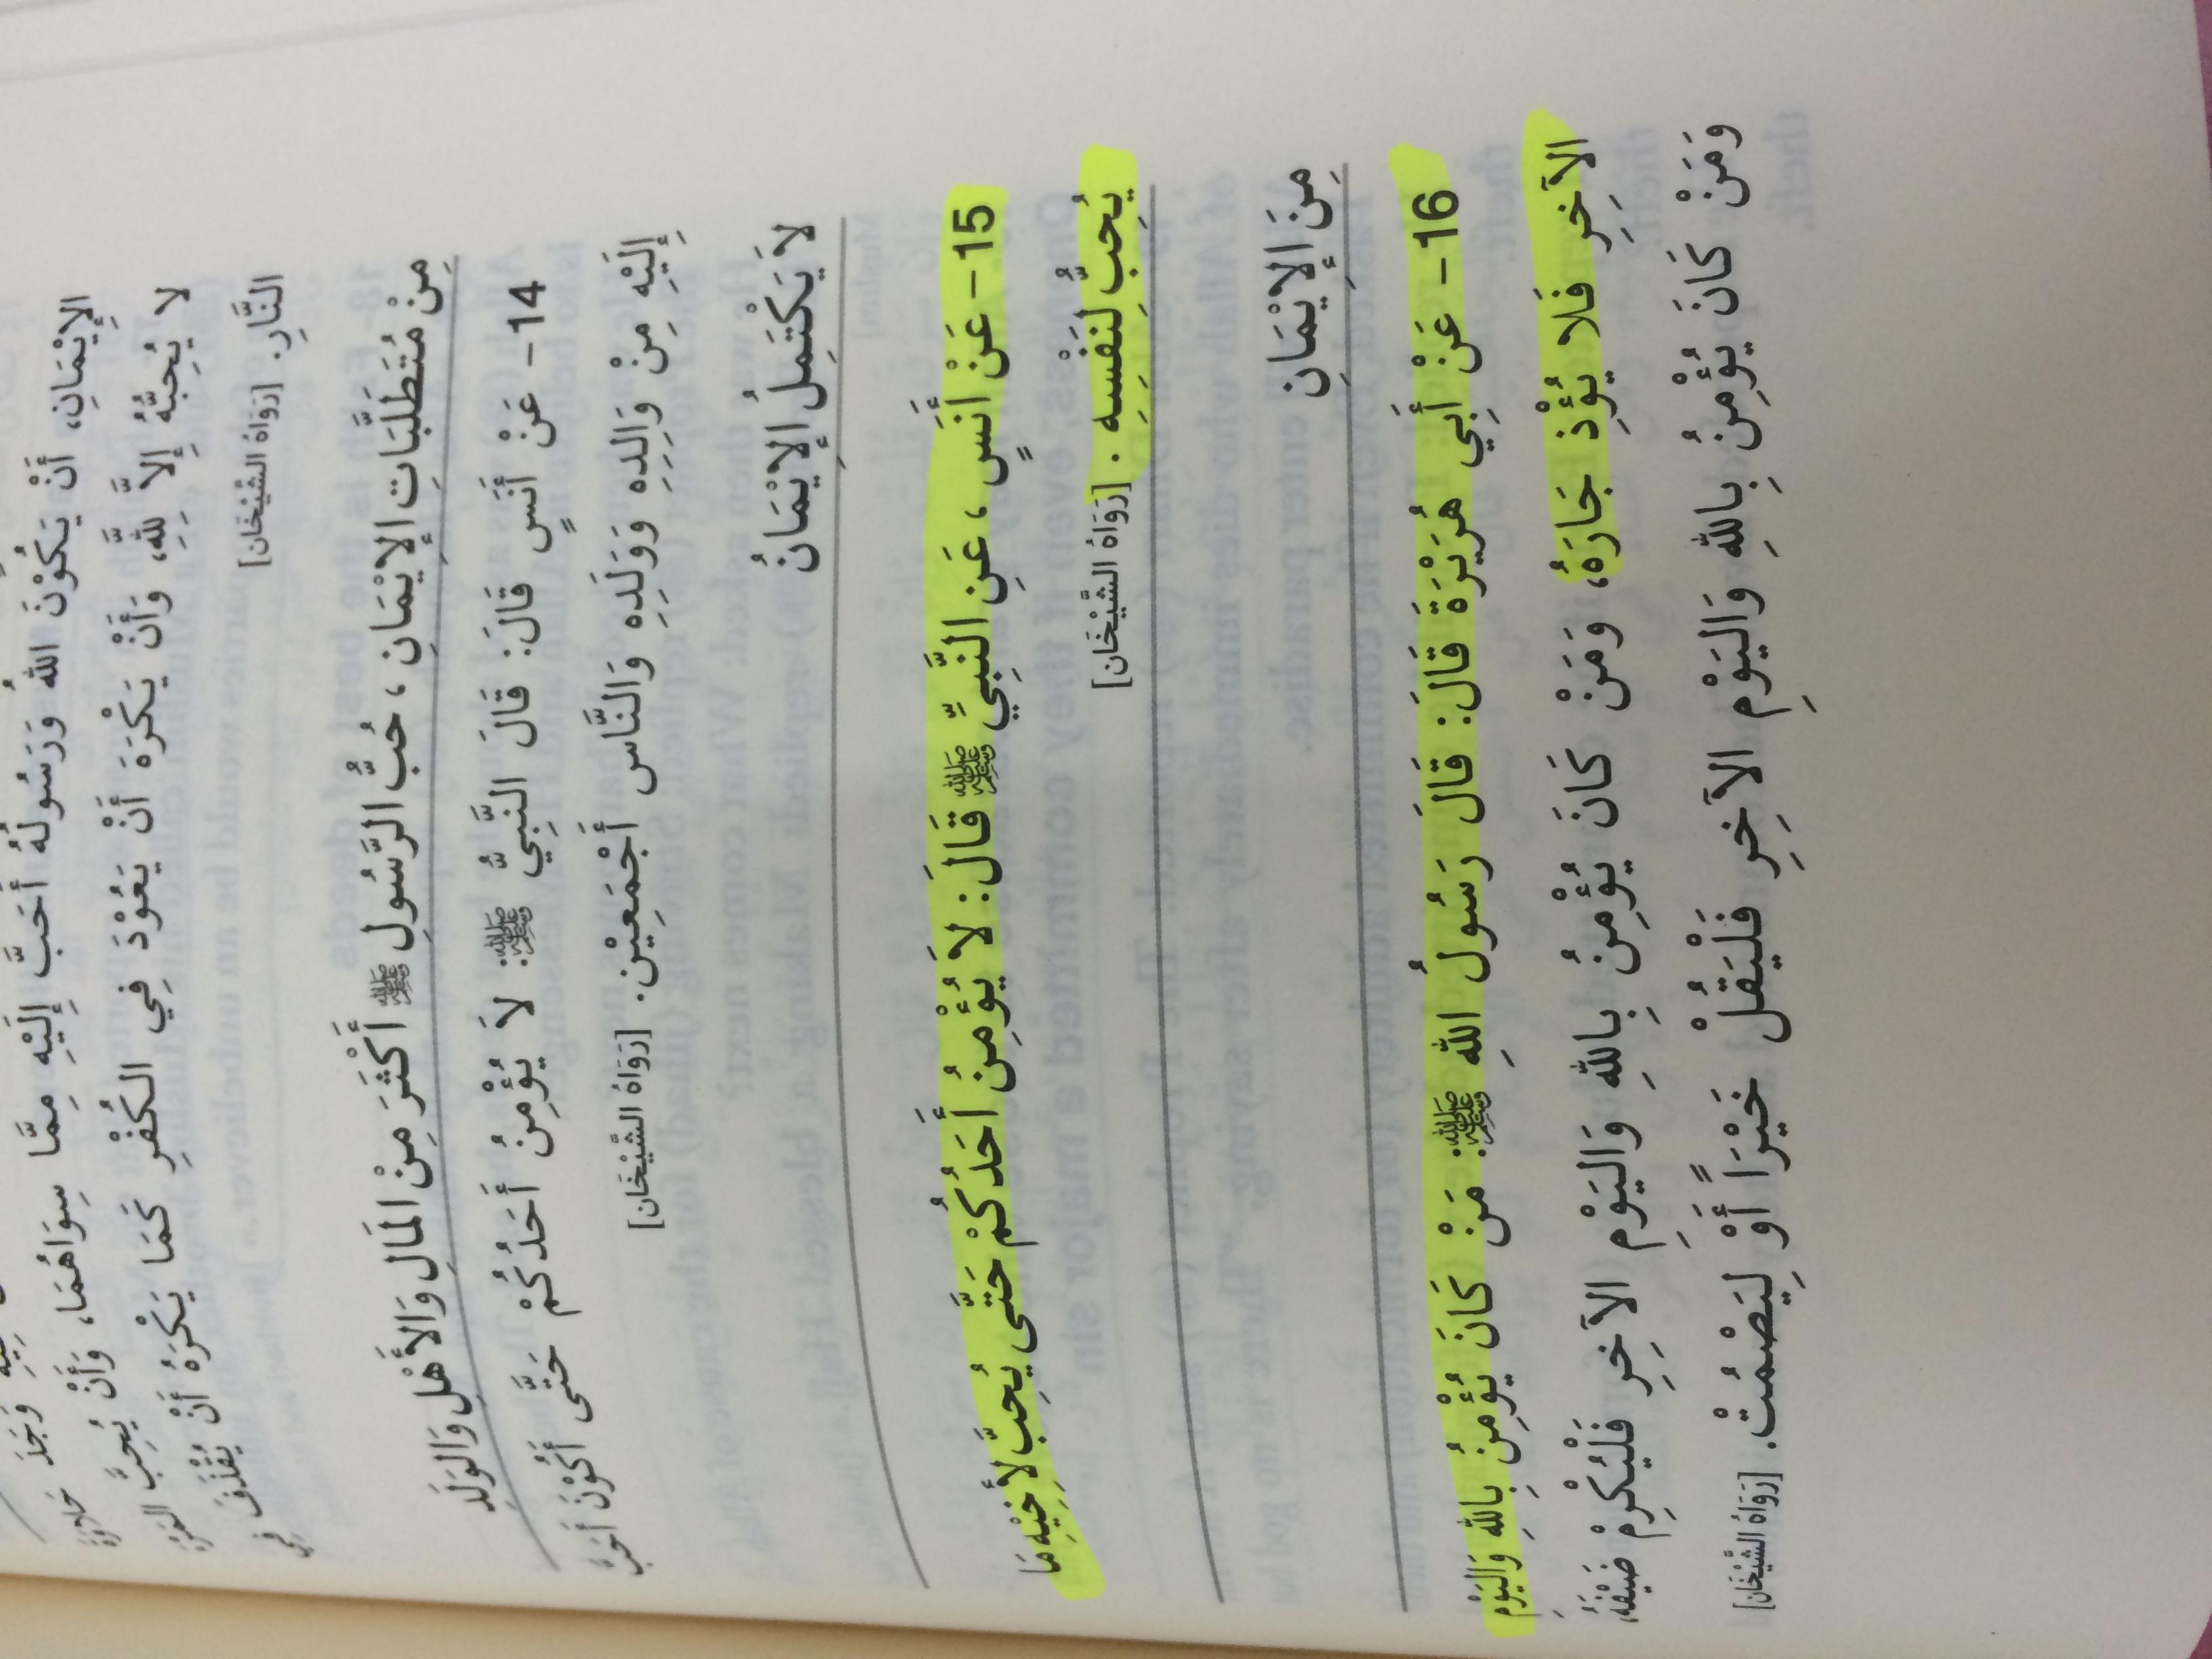 وَجَدَ
الإِيْمَانِ، أَنْ يَكُوْنَ اللهُ وَرَسُولُهُ أَحَبَّ إِلَيْهِ مِمَّا سِوَاهُمَا، وَأَنْ يُحِبَّ المَرْءَ
لا يُحِبُّهُ إِلاَّ لِلَّهِ، وَأَنْ يَكْرَهَ أَنْ يَعُوْدَ فِي الكُفْرِ كَمَا يَكْرَهُ أَنْ يُقْذَفَ فِي
النَّارِ. [رَوَاهُ الشَّيْخَان]
مِنْ مُتَطَلَّبَاتِ الإِيْمَانِ، حُبُّ الرَّسُولِ ﷺ أَكْثَرَ مِنْ المَالِ وَالأَهْلِ وَالوَلَدِ
14- عَنْ أَنَسٍ قَالَ: قَالَ النَّبِيُّ ﷺ: لاَ يُؤْمِنُ أَحَدُكُمْ حَتَّى أَكُوْنَ أَحَبَّ
إِلَيْهِ مِنْ وَالِدِهِ وَوَلَدِهِ وَالنَّاس أَجْمَعِيْن. [رَوَاهُ الشَّيْخَان]
لا يَكْتَمِلُ الإِيْمَانُ
15- عَنْ أَنَسٍ، عَنِ النَّبِيِّ ﷺ قَالَ: لاَ يُؤْمِنُ أَحَدُكُمْ حَتَّى يُحِبَّ لأَخِيْهِ مَا
يُحِبُّ لِنَفْسِهِ. [رَوَاهُ الشَّيْخَان]
مِنَ الإِيْمَانِ
16- عَنْ أَبِي هُرَيْرَةَ قَالَ: قَالَ رَسُولُ اللهِ ﷺ: مَنْ كَانَ يُؤْمِنُ بِاللهِ وَاليَوْمِ
الآخِرِ فَلا يُؤْذِ جَارَهُ، وَمَنْ كَانَ يُؤْمِنُ بِاللهِ وَاليَوْمِ الآخِرِ فَلْيُكْرِمْ ضَيْفَهُ،
وَمَنْ كَانَ يُؤْمِنُ بِاللهِ وَاليَوْمِ الآخِرِ فَلْيَقُلْ خَيْرَاً أَوْ لِيَصْمُتْ. [رَوَاهُ الشَّيْخَان]